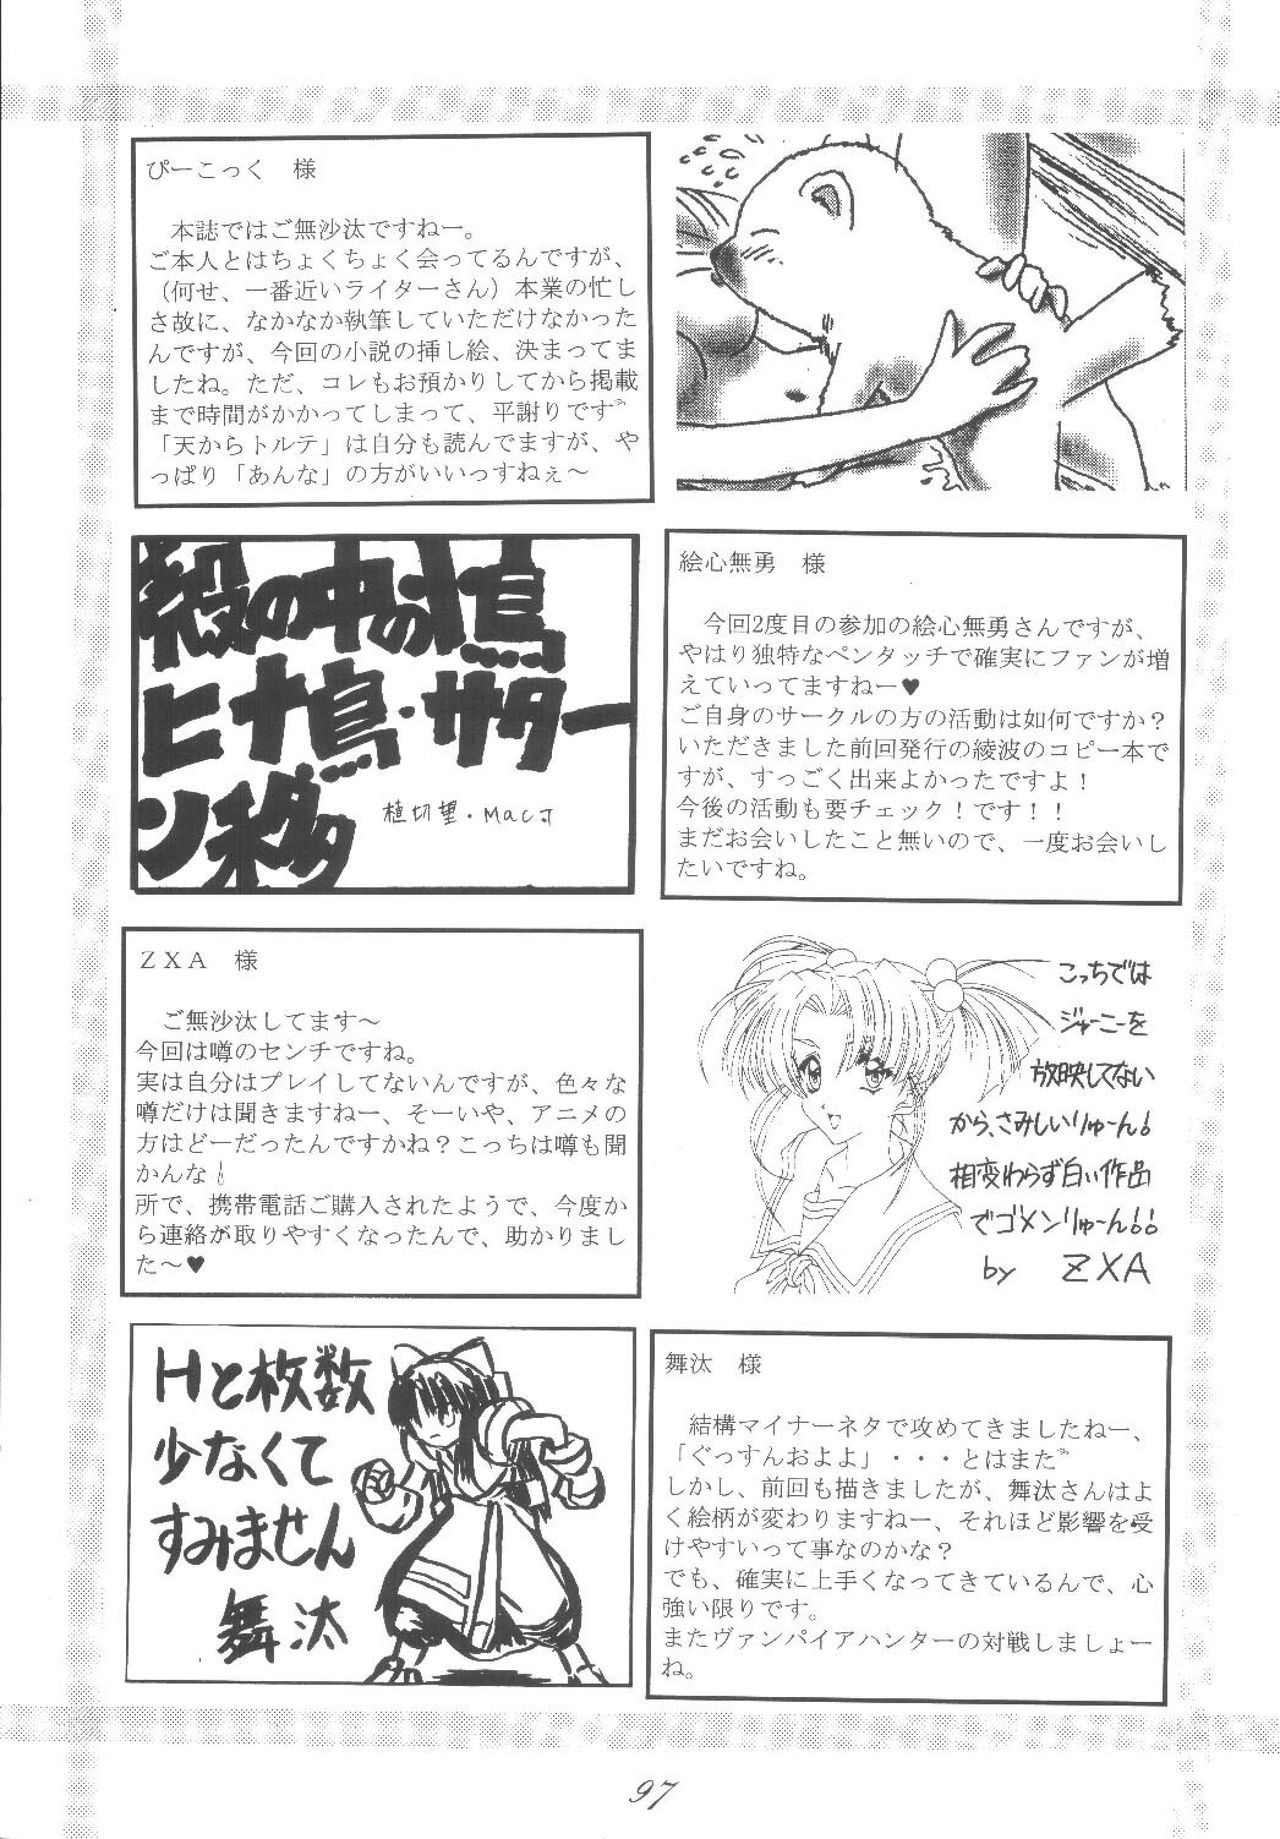 ぴーこっく　様
　本誌ではご無沙汰ですねー。
ご本人とはちょくちょく会ってるんですが、
（何せ、一番近いライターさん）本業の忙し
さ故に、なかなか執筆していただけなかった
んですが、今回の小説の挿し絵、決まってま
したね。ただ、コレもお預かりしてから掲載
まで時間がかかってしまって、平謝りです
「天からトルテ」は自分も読んでますが、や
っぱり「あんな」の方がいいっすねぇ～
殻の中の鳥
ヒナ鳥・サター
ン移
植切望・MacJ
絵心無勇　様
　今回2度目の参加の絵心無勇さんですが、
やはり独特なペンタッチで確実にファンが増
えていってますねー♥
ご自身のサークルの方の活動は如何ですか？
いただきました前回発行の綾波のコピー本で
すが、すっごく出来よかったですよ！
今後の活動も要チェック！です！！
まだお会いしたこと無いので、一度お会いし
たいですね。
ＺＸＡ　様
　ご無沙汰してます～
今回は噂のセンチですね。
実は自分はプレイしてないんですが、色々な
噂だけは聞きますねー、そーいや、アニメの
方はどーだったんですかね？こっちは噂も聞
かんな
所で、携帯電話ご購入されたようで、今度か
ら連絡が取りやすくなったんで、助かりまし
た～♥
こっちでは
ジャーニーを
放映してない
から、さみしいりゅーん！
相変わらず白い作品
でゴメンりゅーん！！
by ZXA
Hと枚数
少なくて
すみません
舞汰
舞汰　様
　結構マイナーネタで攻めてきましたねー、
「ぐっすんおよよ」・・・とはまた
しかし、前回も描きましたが、舞汰さんはよ
く絵柄が変わりますねー、それほど影響を受
けやすいって事なのかな？
でも、確実に上手くなってきているんで、心
強い限りです。
またヴァンパイアハンターの対戦しましょー
ね。
97